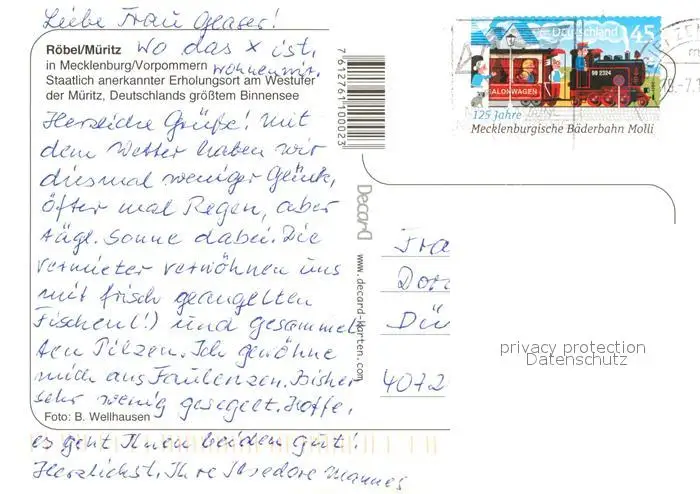 Liebe Frau Glaser!
Röbel/Müritz wo das x ist,
in Mecklenburg/Vorpommern wohnen wir.
Staatlich anerkannter Erholungsort am Westufer
der Müritz, Deutschlands größtem Binnensee
Herzliche Grüße! Mit
dem Wetter haben wir
diesmal weniger Glück,
öfter mal Regen, aber
tägl. Sonne dabei. Die
Vermieter verwöhnen uns
mit frisch geangelten
Fischen(!) und gesammel
ten Pilzen. Ich gewöhne
mich ans Faulenzen. Bisher
sehr wenig gesegelt. Hoffe,
Foto: B. Wellhausen
es geht Ihnen beiden gut!
Herzlichst, Ihre Isedore Mannes
7612761100023
Decard
www.decard-karten.com
Deutschland 45
SALONWAGEN
99 2324
125 Jahre
Mecklenburgische Bäderbahn Molli
Fra
Dor
Dü
4072
privacy protection
Datenschutz